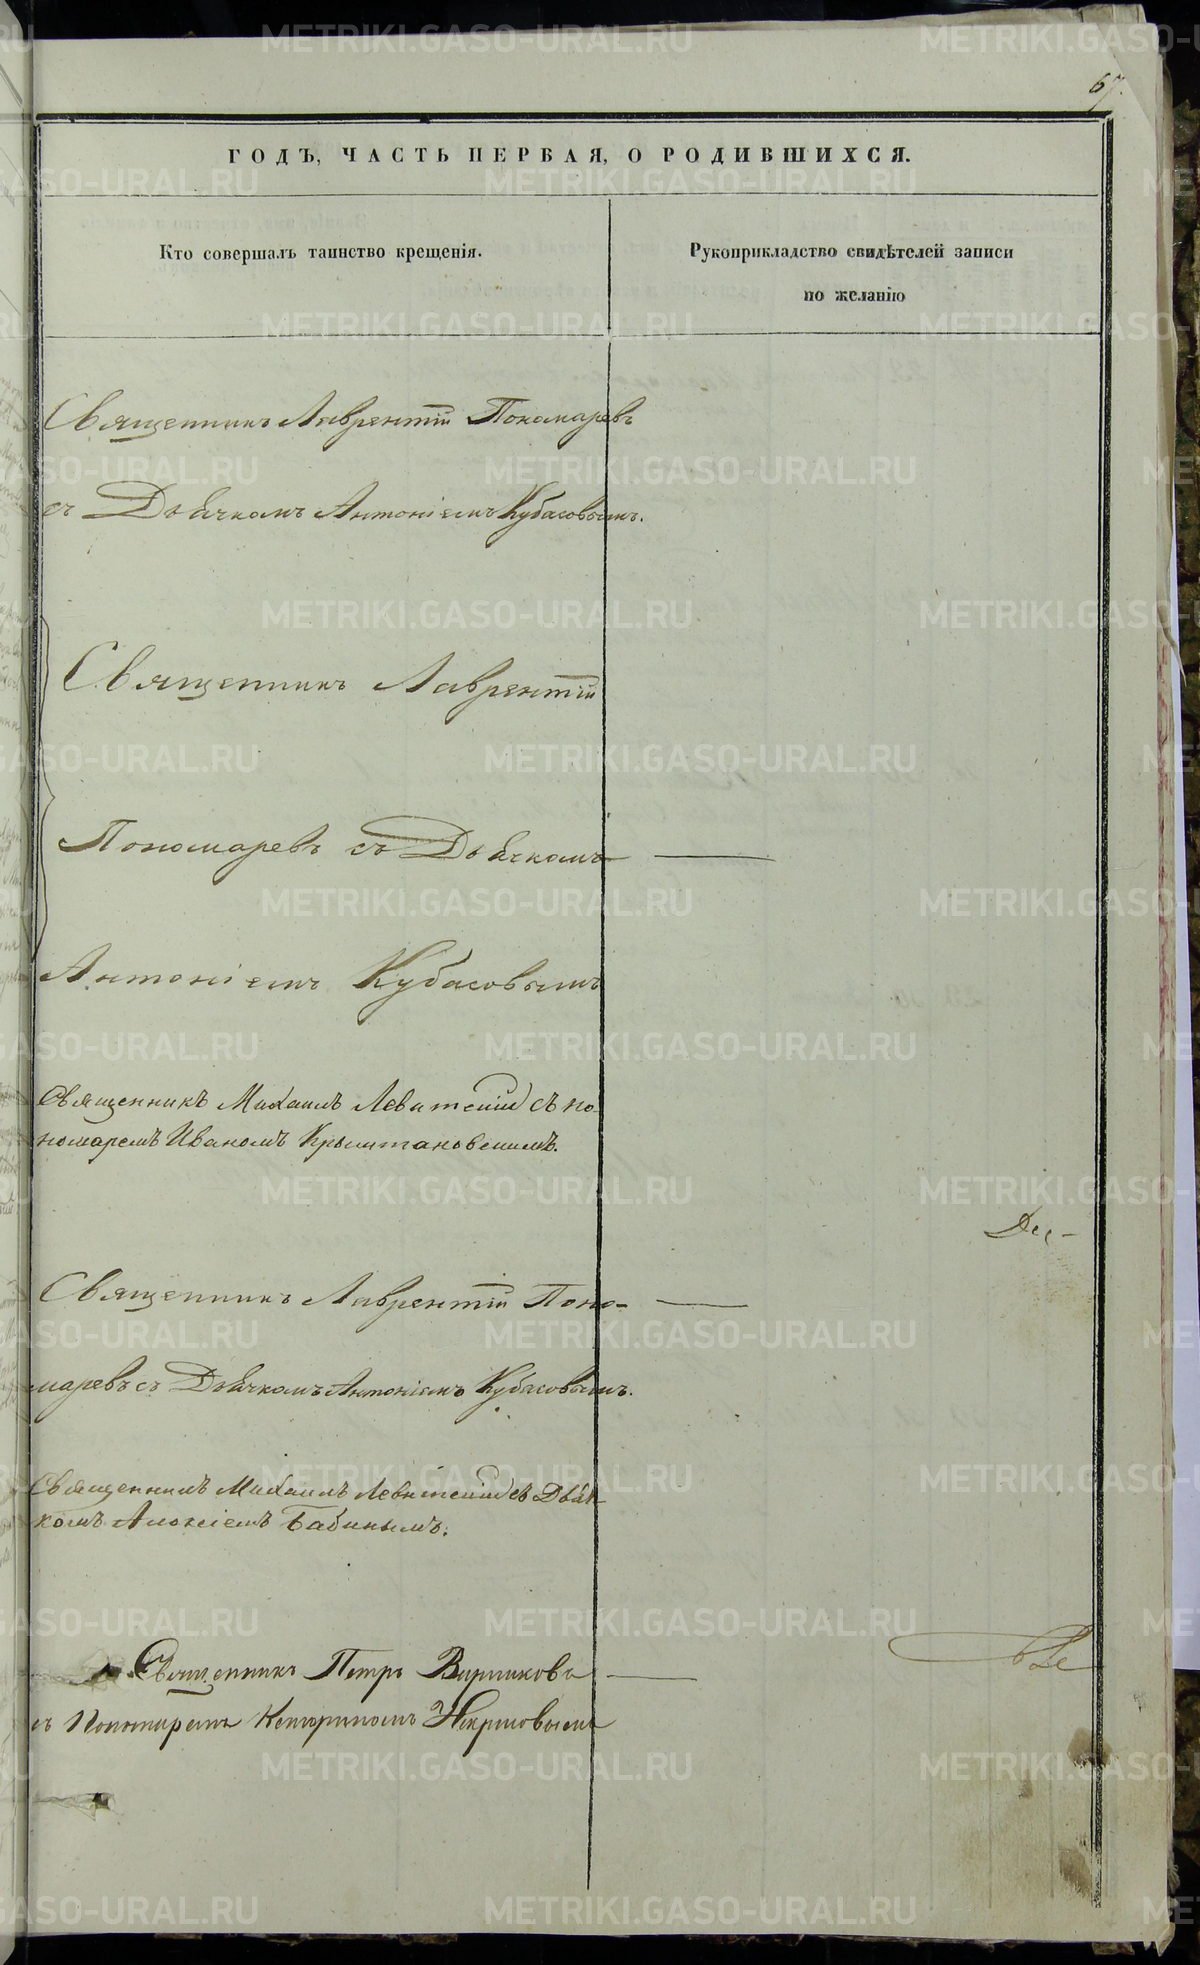 67.
ГОДЪ, ЧАСТЬ ПЕРВАЯ, О РОДИВШИХСЯ.
Кто совершалъ таинство крещенія.
Рукоприкладство свидѣтелей записи
по желанію
Священникъ Лаврентій Пономаревъ
съ Дьячкомъ Антоніемъ Кубасовымъ.
Священникъ Лаврентій
Пономаревъ съ Дьячкомъ
Антоніемъ Кубасовымъ
Священникъ Михаилъ Левитскій съ по-
номаремъ Иваномъ Крыштановскимъ.
Священникъ Лаврентій Поно-
маревъ съ Дьячкомъ Антоніемъ Кубасовымъ.
Священникъ Михаилъ Левитскій съ Дьяч-
комъ Алексіемъ Бабинымъ.
Священникъ Петръ
съ Пономаремъ
METRIKI.GASO-URAL.RU